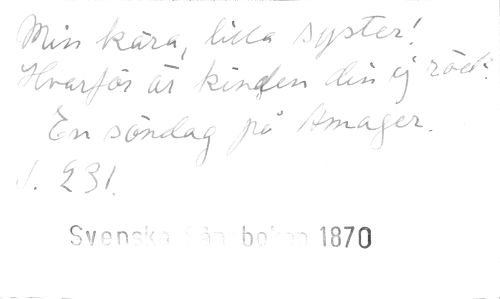 Min kära, lilla syster!
Hvarför är kinden din ej röd?
En söndag på Amager.
S. 231.
Svenska boken 1870